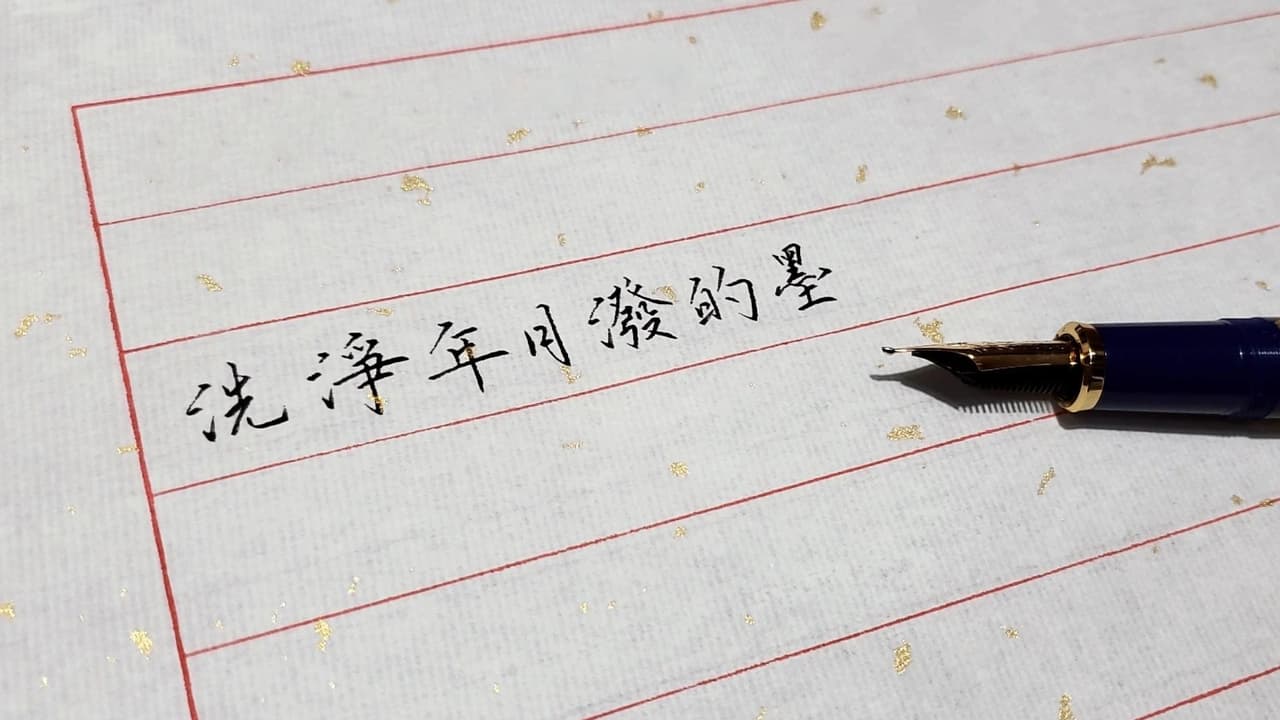 洗淨年月潑的墨